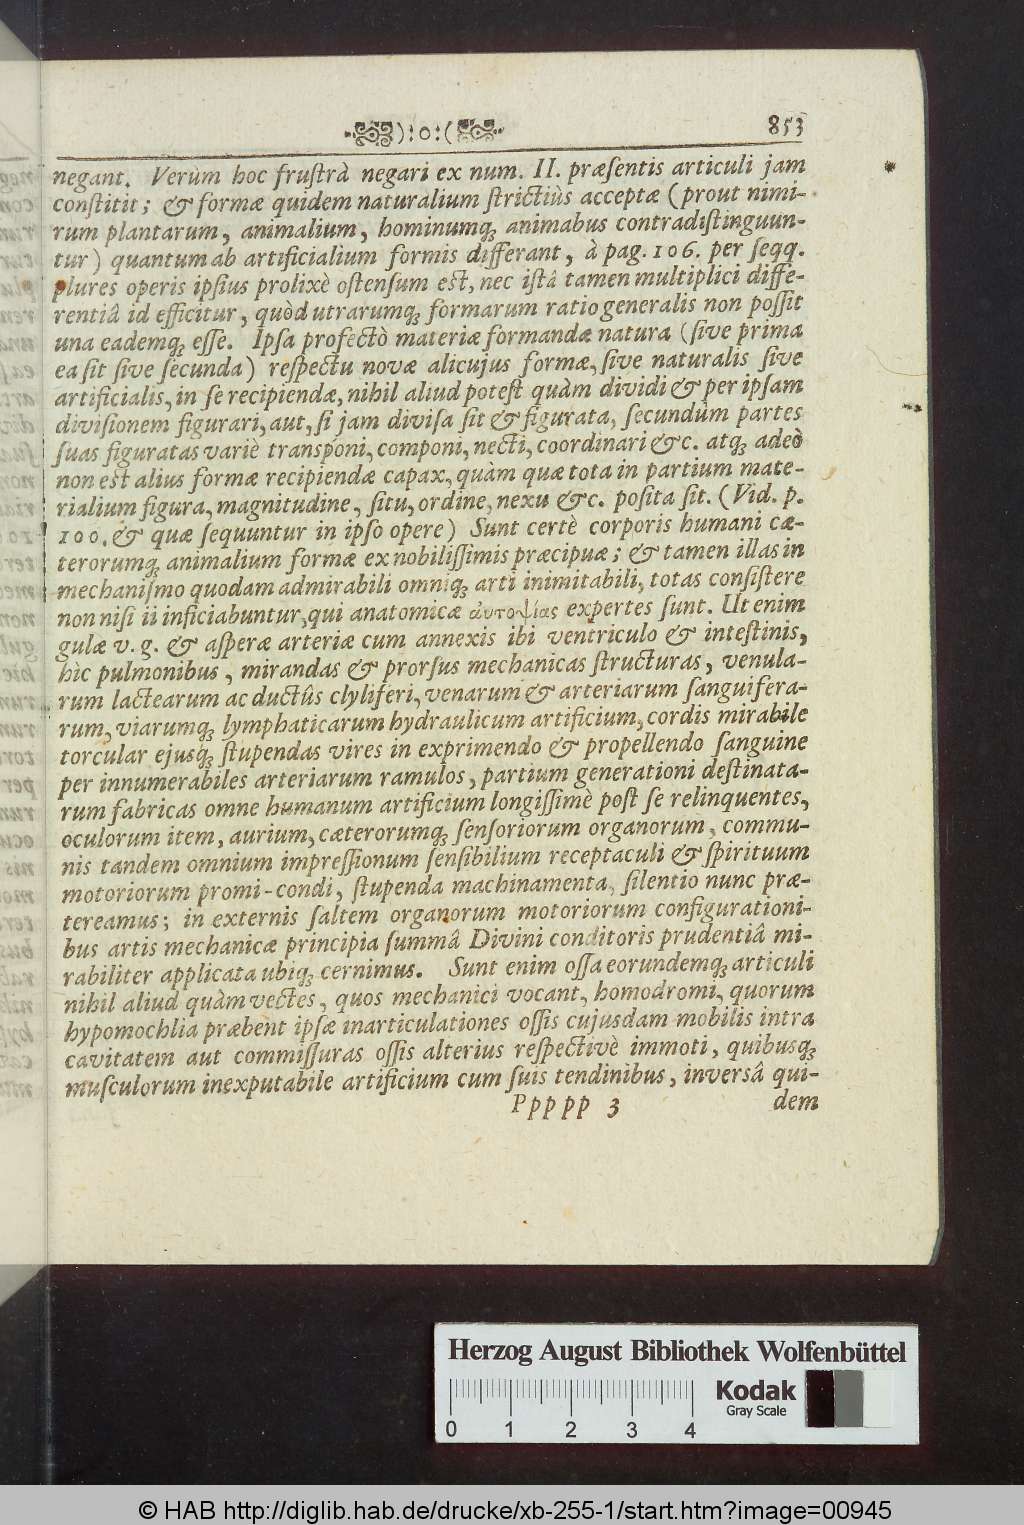 ):o:( 853
negant. Verùm hoc fruſtrà negari ex num. II. præſentis articuli jam
conſtitit; & formæ quidem naturalium ſtrictiùs acceptæ (prout nimi-
rum plantarum, animalium, hominumq; animabus contradiſtinguun-
tur) quantum ab artificialium formis differant, à pag. 106. per ſeqq.
plures operis ipſius prolixè oſtenſum eſt, nec iſtâ tamen multiplici diffe-
rentiâ id efficitur, quòd utrarumq; formarum ratio generalis non poſſit
una eademq; eſſe. Ipſa profectò materiæ formandæ natura (ſive prima
ea ſit ſive ſecunda) reſpectu novæ alicujus formæ, ſive naturalis ſive
artificialis, in ſe recipiendæ, nihil aliud poteſt quàm dividi & per ipſam
diviſionem figurari, aut, ſi jam diviſa ſit & figurata, ſecundùm partes
ſuas figuratas variè transponi, componi, necti, coordinari &c. atq; adeò
non eſt alius formæ recipiendæ capax, quàm quæ tota in partium mate-
rialium figura, magnitudine, ſitu, ordine, nexu &c. poſita ſit. (Vid. p.
100. & quæ ſequuntur in ipſo opere) Sunt certè corporis humani cæ-
terorumq; animalium formæ ex nobiliſſimis præcipuæ; & tamen illas in
mechaniſmo quodam admirabili omniq; arti inimitabili, totas conſiſtere
non niſi ii inficiabuntur, qui anatomicæ αυτοψίας expertes ſunt. Ut enim
gulæ v. g. & aſperæ arteriæ cum annexis ibi ventriculo & inteſtinis,
hìc pulmonibus, mirandas & prorſus mechanicas ſtructuras, venula-
rum lactearum ac ductûs clyliferi, venarum & arteriarum ſanguifera-
rum, viarumq; lymphaticarum hydraulicum artificium, cordis mirabile
torcular ejusq; ſtupendas vires in exprimendo & propellendo ſanguine
per innumerabiles arteriarum ramulos, partium generationi deſtinata-
rum fabricas omne humanum artificium longiſſimè poſt ſe relinquentes,
oculorum item, aurium, cæterorumq; ſenſoriorum organorum, commu-
nis tandem omnium impreſſionum ſenſibilium receptaculi & ſpirituum
motoriorum promi-condi, ſtupenda machinamenta, ſilentio nunc præ-
tereamus; in externis ſaltem organorum motoriorum configurationi-
bus artis mechanicæ principia ſummâ Divini conditoris prudentiâ mi-
rabiliter applicata ubiq; cernimus. Sunt enim oſſa eorundemq; articuli
nihil aliud quàm vectes, quos mechanici vocant, homodromi, quorum
hypomochlia præbent ipſæ inarticulationes oſſis cujusdam mobilis intra
cavitatem aut commiſſuras oſſis alterius reſpectivè immoti, quibusq;
muſculorum inexputabile artificium cum ſuis tendinibus, inversâ qui-
Ppppp 3 dem
Herzog August Bibliothek Wolfenbüttel
Kodak
Gray Scale
0 1 2 3 4
© HAB http://diglib.hab.de/drucke/xb-255-1/start.htm?image=00945